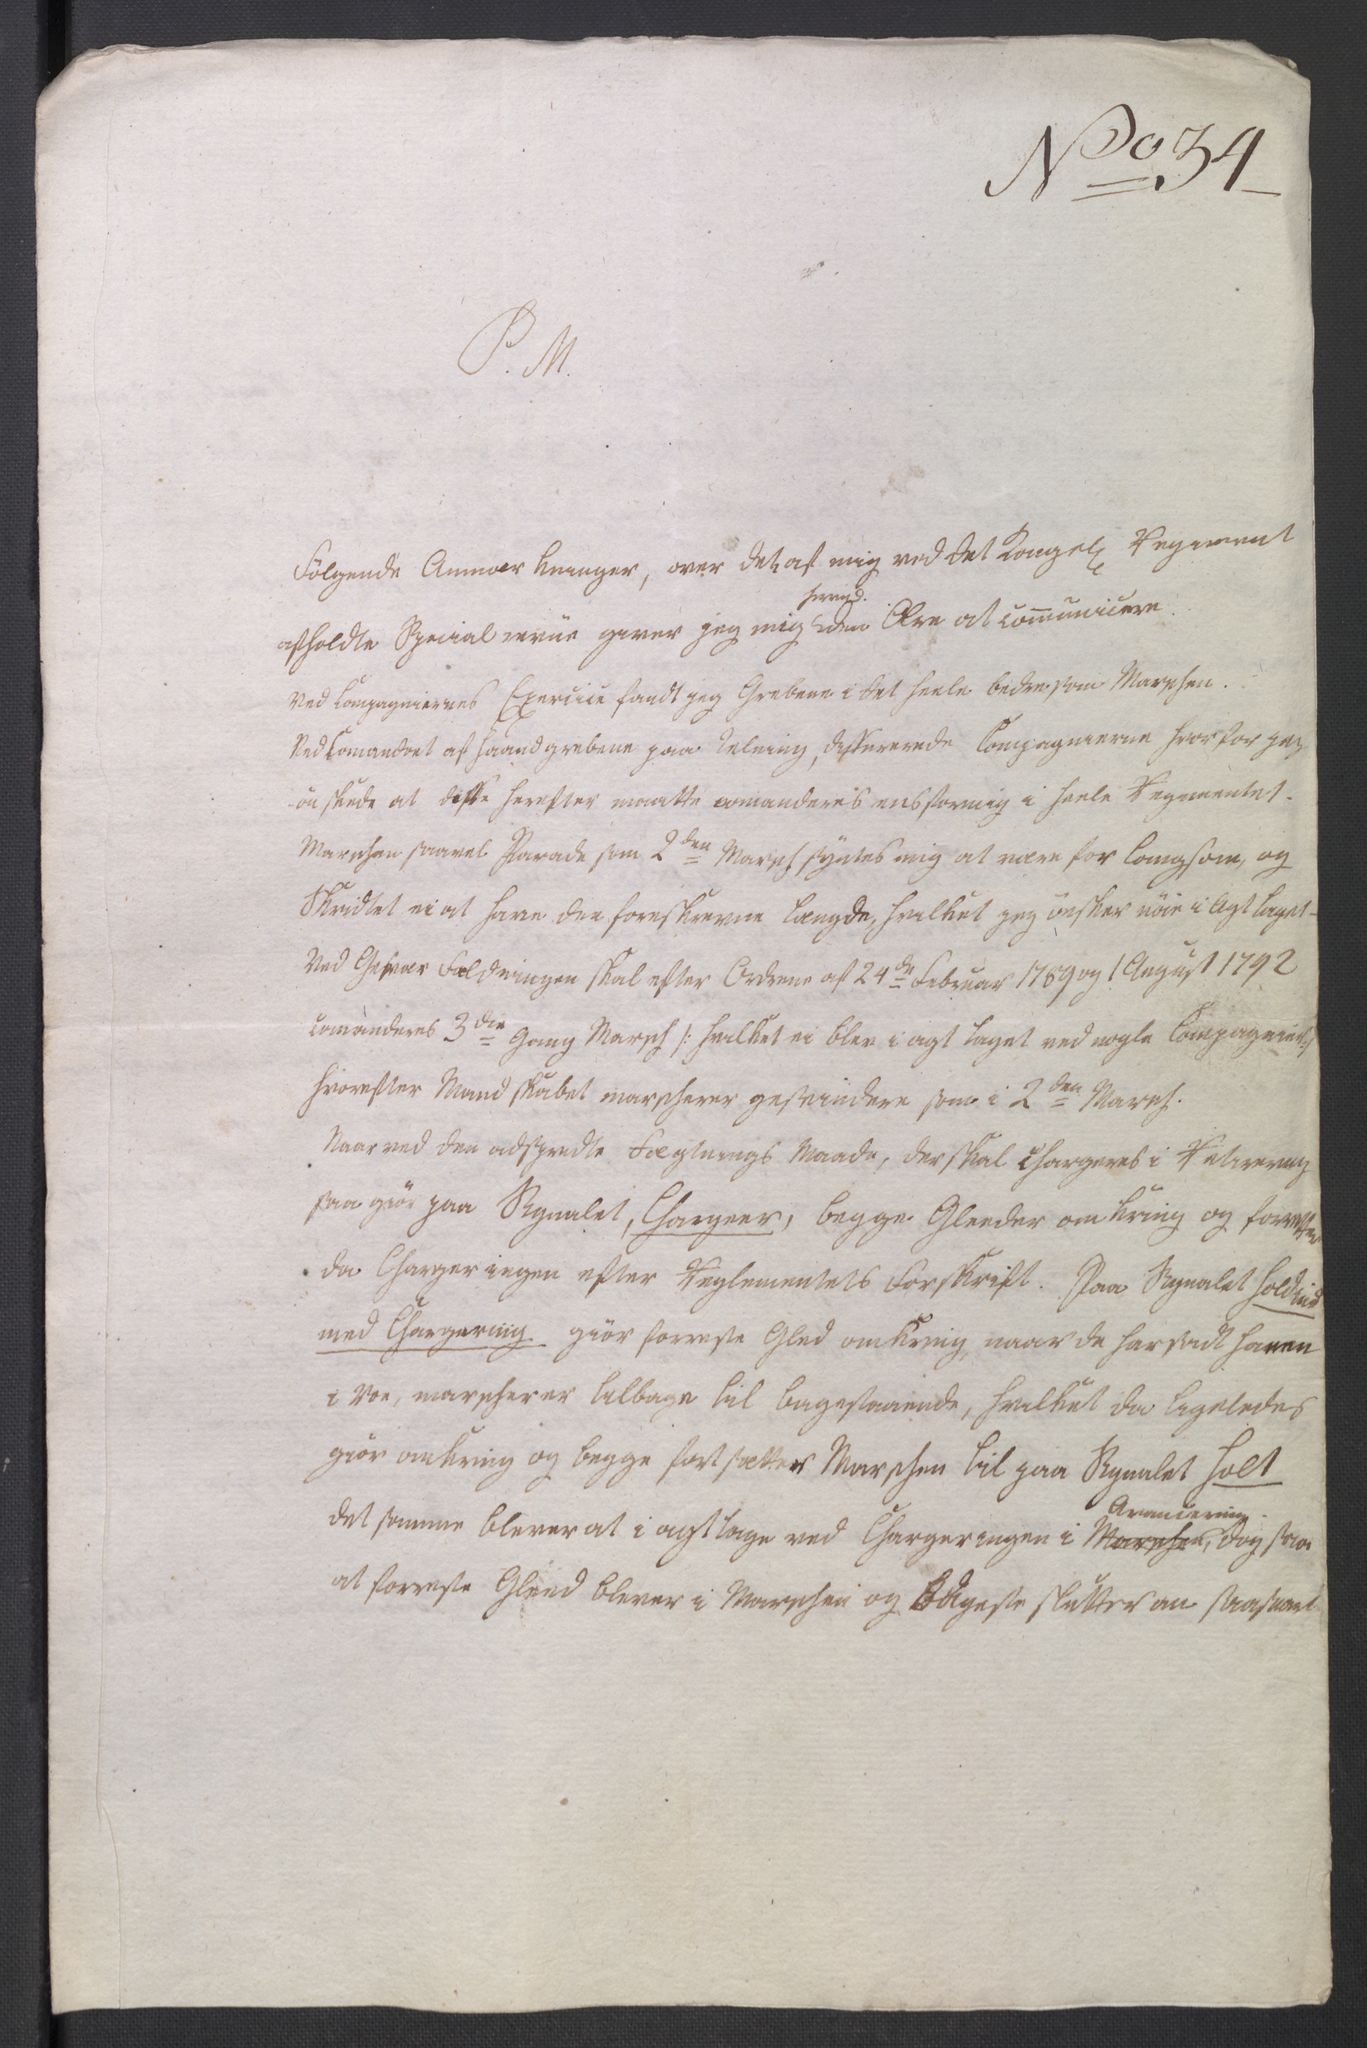 No 34
P. M.
Følgende Anmærkninger, over det af mig ved det Kongel. Regiment
herved.
afholdte Special revüe giver jeg mig den Ære at communicere.
Ved Compagniernes Exercice fandt jeg Grebene i det heele bedre som Marschen.
Ved Comandoet af Haandgrebene paa Telning, differerede Compagnierne hvorfor jeg
önskede at disse herefter maatte comanderes ensformig i heele Regimentet.
Marschen saavel Parade som 2den Marsch syntes mig at være for langsom, og
Skridtet ei at have den foreskrevne Længde, hvilket jeg önsker nöie i Agt taget.
Ved Gevær Fældningen skal efter Ordrene af 24de Februar 1789 og 1 August 1792
comanderes 3die Gang Marsch /: hvilket ei blev i agt taget ved nogle Compagnier :/
hvorefter Mandskabet marscherer gesvindere som i 2den Marsch.
Naar ved den adspredte Fægtnings Maade, der skal chargeres i Retirering
saa giör paa Signalet, Chargeer, begge Gleeder omkring og forretter
da Chargeringen efter Reglementets Forskrift. Paa Signalet hold ind
med Chargering giör forreste Gled omkring, naar de har sadt Hanen
i Roe, marscherer tilbage til bagestaaende, hvilket da ligeledes
giör omkring og begge fortsætter Marschen til paa Signalet holt
Avancering.
det samme bliver at i agt tage ved Chargeringen i Marschen, dog saa
at forreste Gleed bliver i Marschen og Bageste slutter an saasnart